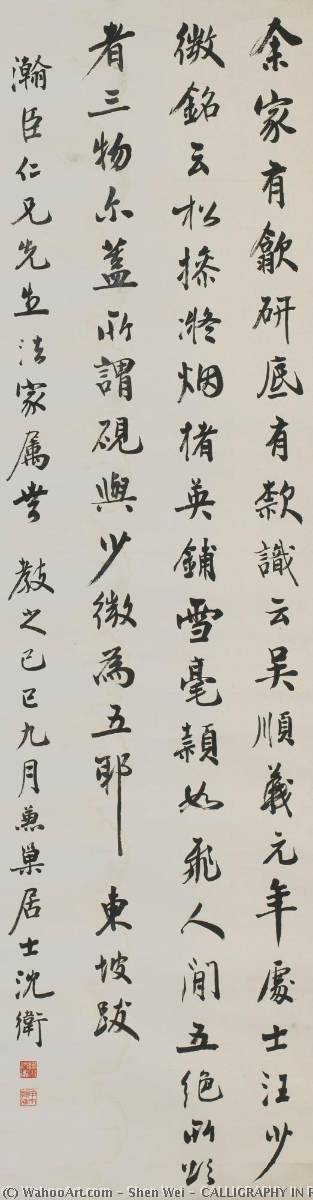 余家有歙研底有款識云吳順義元年處士汪少
微銘云松操凝烟楮英鋪雪毫穎如飛人间五绝所頌
者三物尔蓋所謂硯與少微為五耶 東坡跋
瀚臣仁兄先生法家属書 教之己巳九月兼巢居士沈衛
(C) WahooArt.com - Shen Wei - CALLIGRAPHY IN